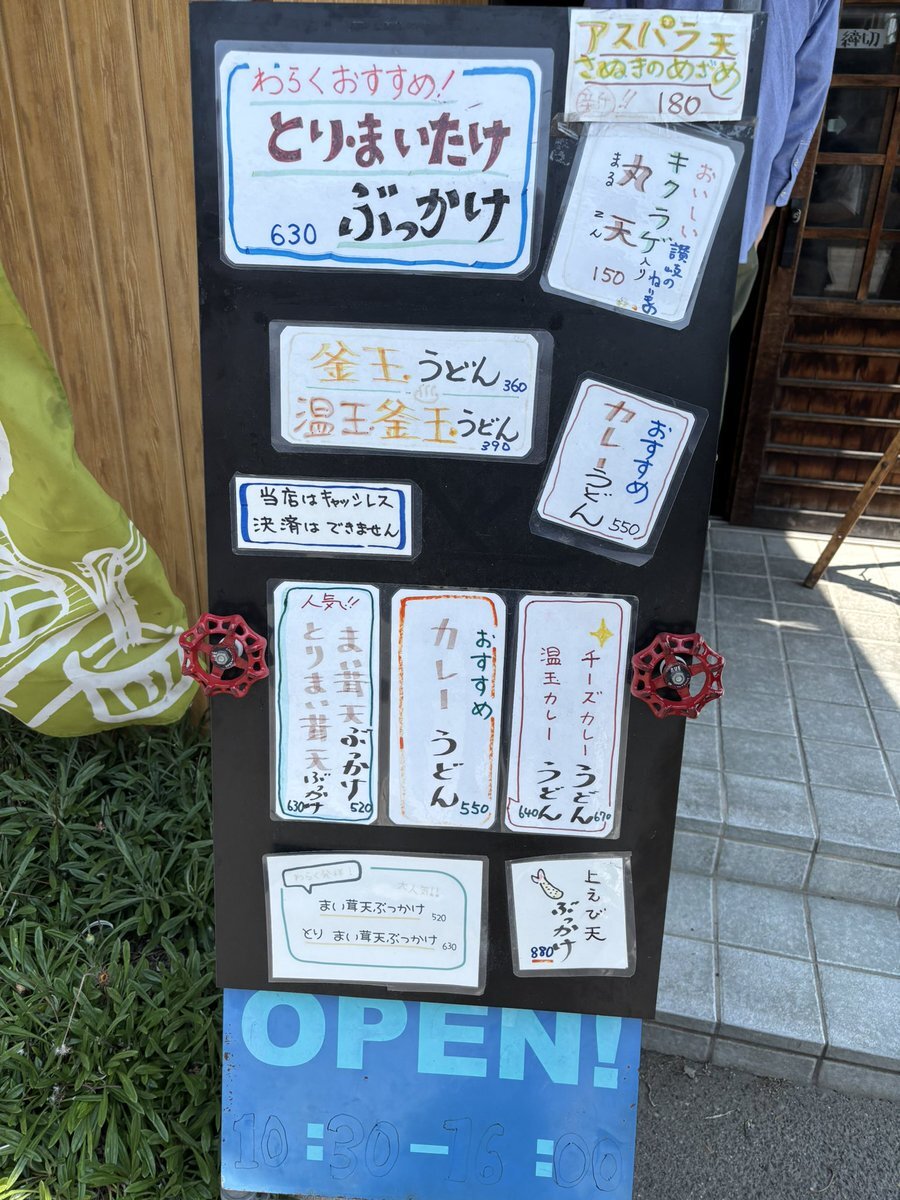 わらくおすすめ!
とり・まいたけ
ぶっかけ
630
アスパラ天
さぬきのめざめ
180
おいしい
キクラゲ入り
讃岐の
丸天
まる
てん
150
締切
釜玉うどん 360
温玉釜玉うどん 390
おすすめ
カレーうどん 550
当店はキャッシレス
決済はできません
人気!!
まい茸天ぶっかけ 520
とりまい茸天ぶっかけ 630
おすすめ
カレーうどん 550
チーズカレーうどん 670
温玉カレーうどん 640
わらく発祥!
大人気!!
まい茸天ぶっかけ 520
とり まい茸天ぶっかけ 630
上えび天
ぶっかけ
880
OPEN!
10:30-16:00